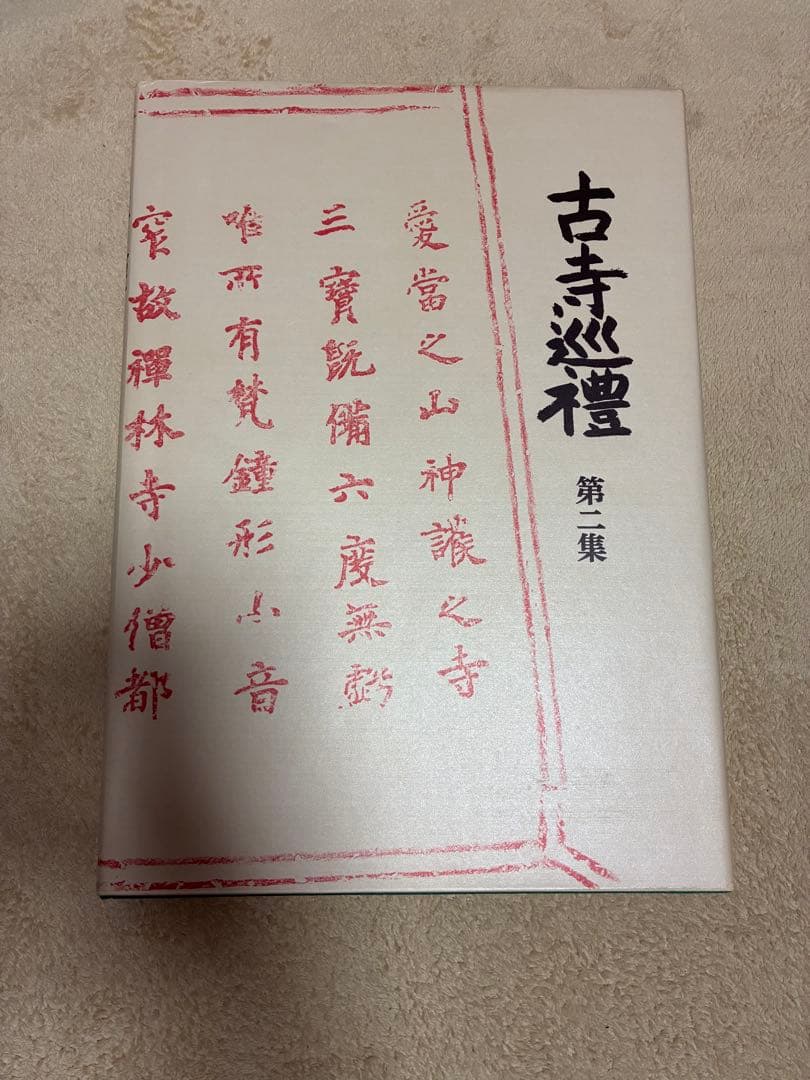 古寺巡禮
第二集
愛當之山神護之寺
三寶既備六度無虧
唯所有梵鐘形小音
窄故禪林寺少僧都